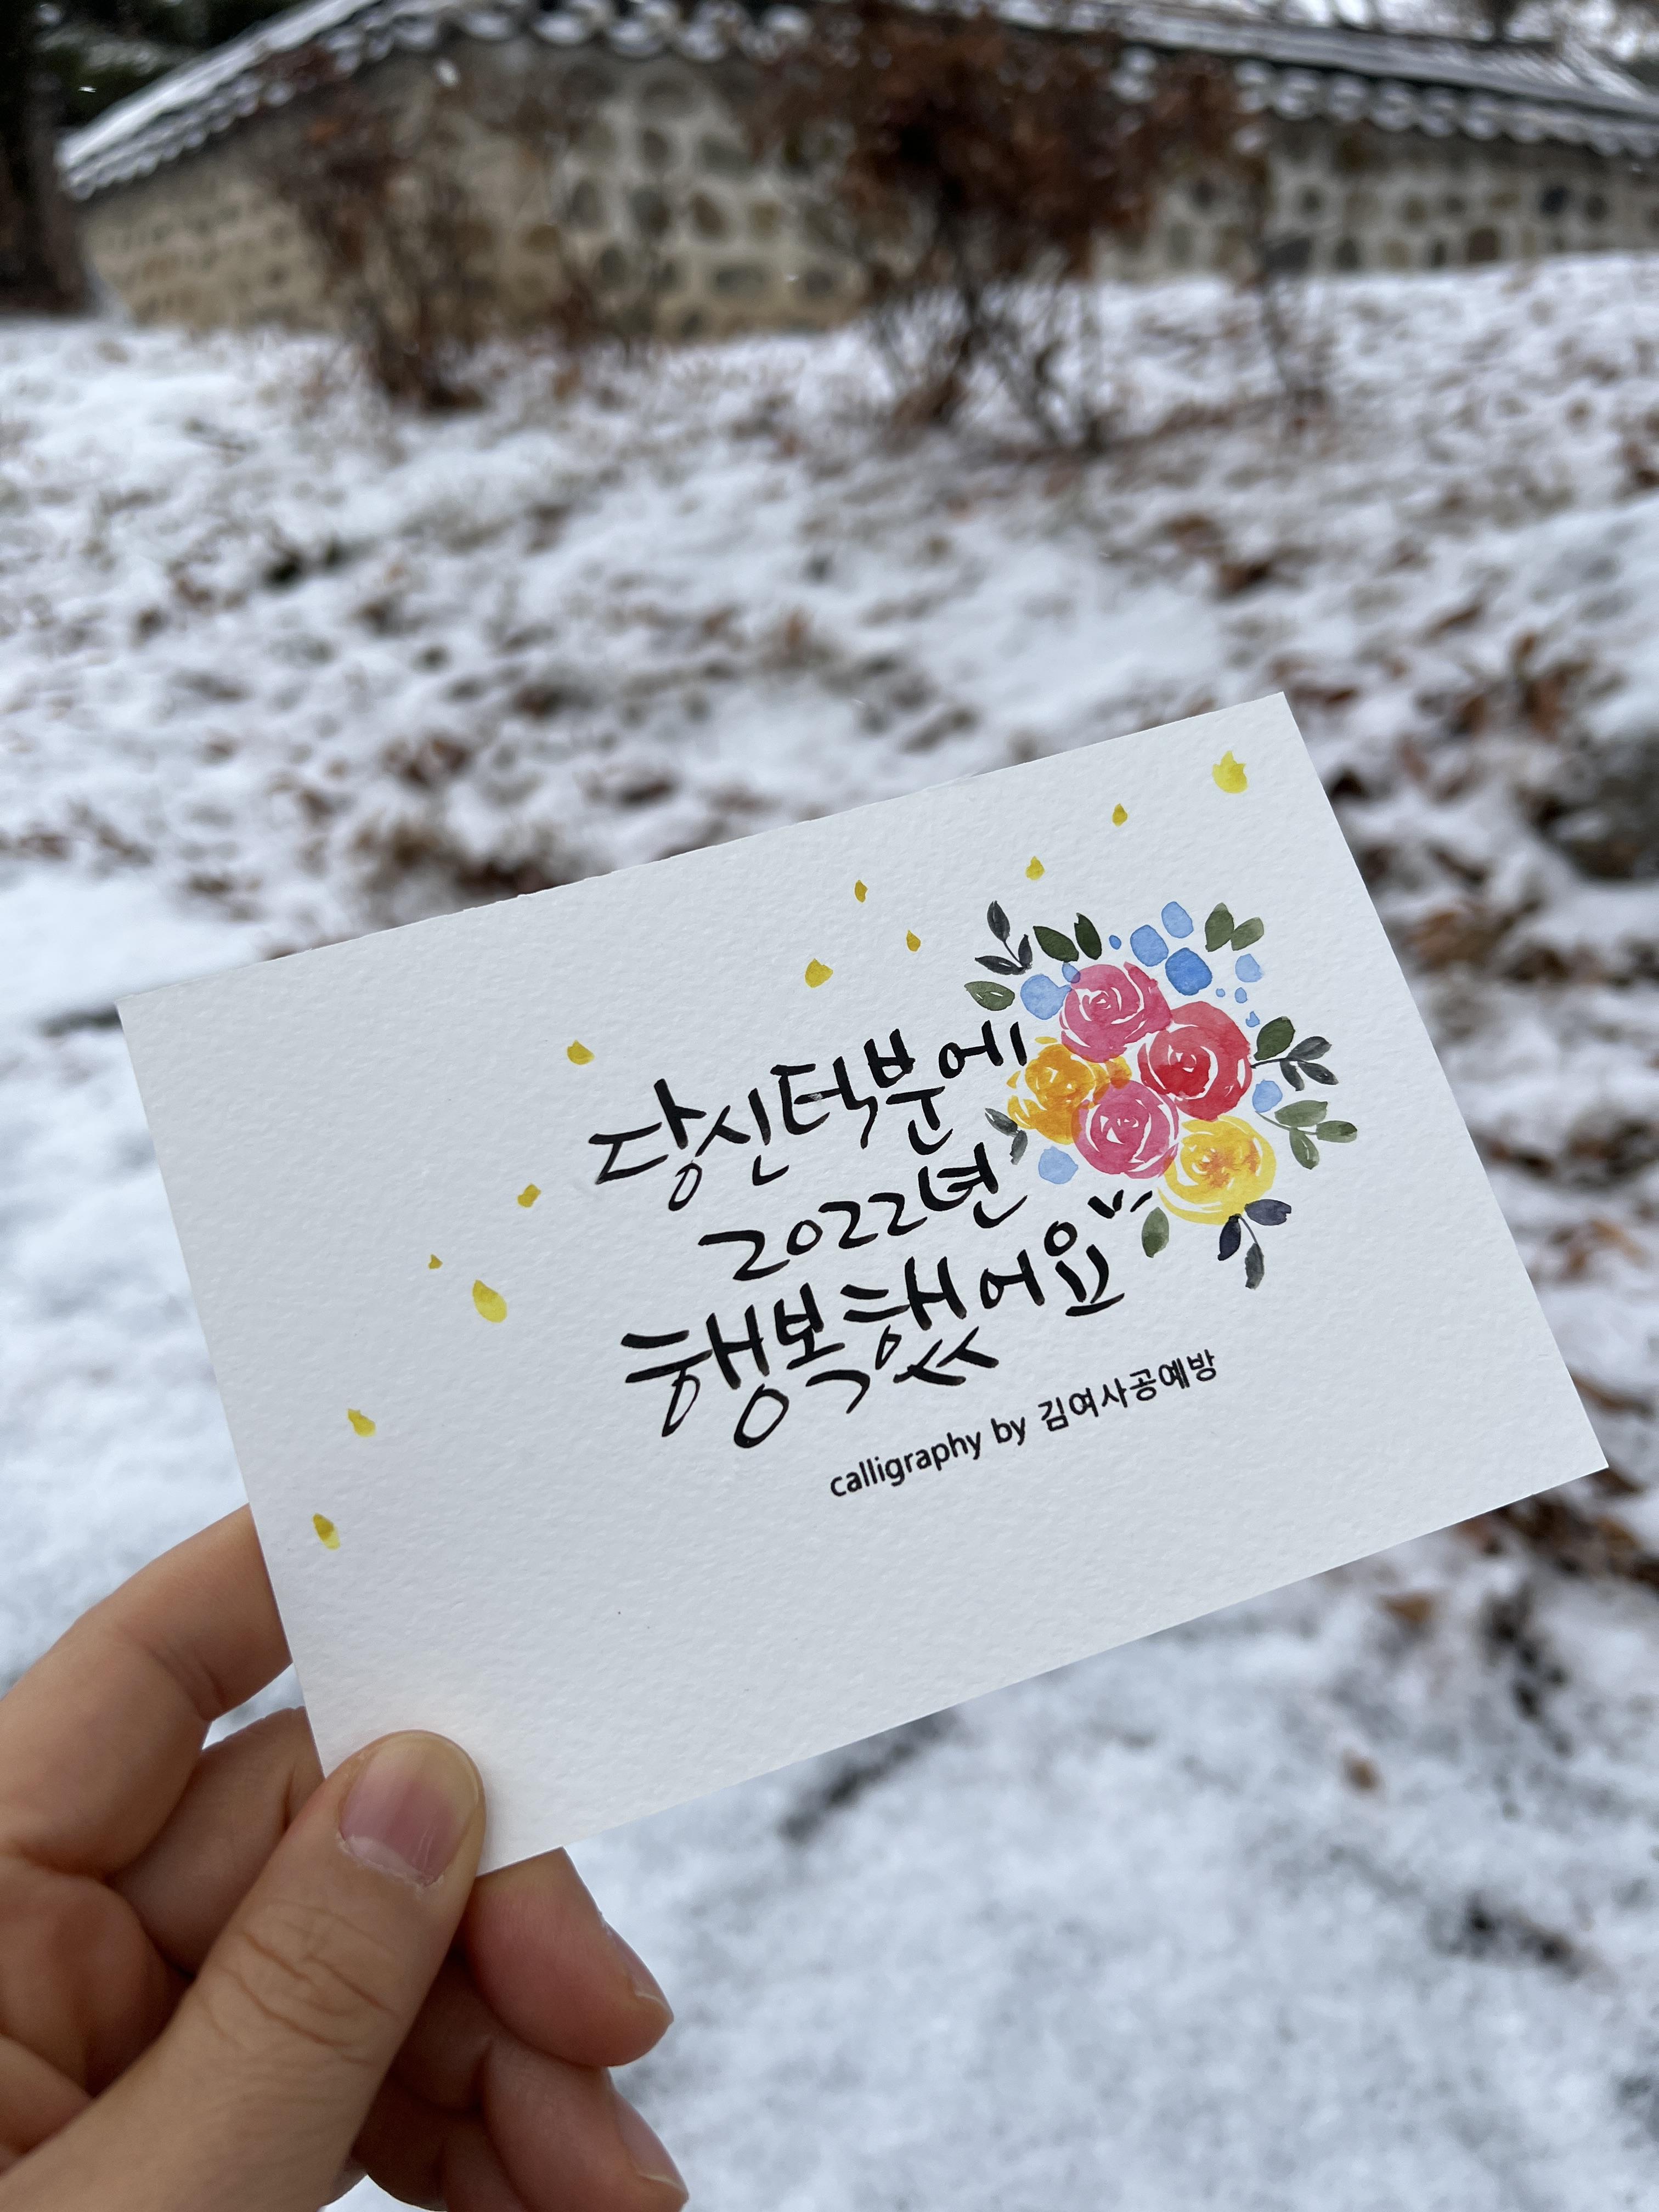 당신덕분에
2022년
행복했어요
calligraphy by 김여사공예방